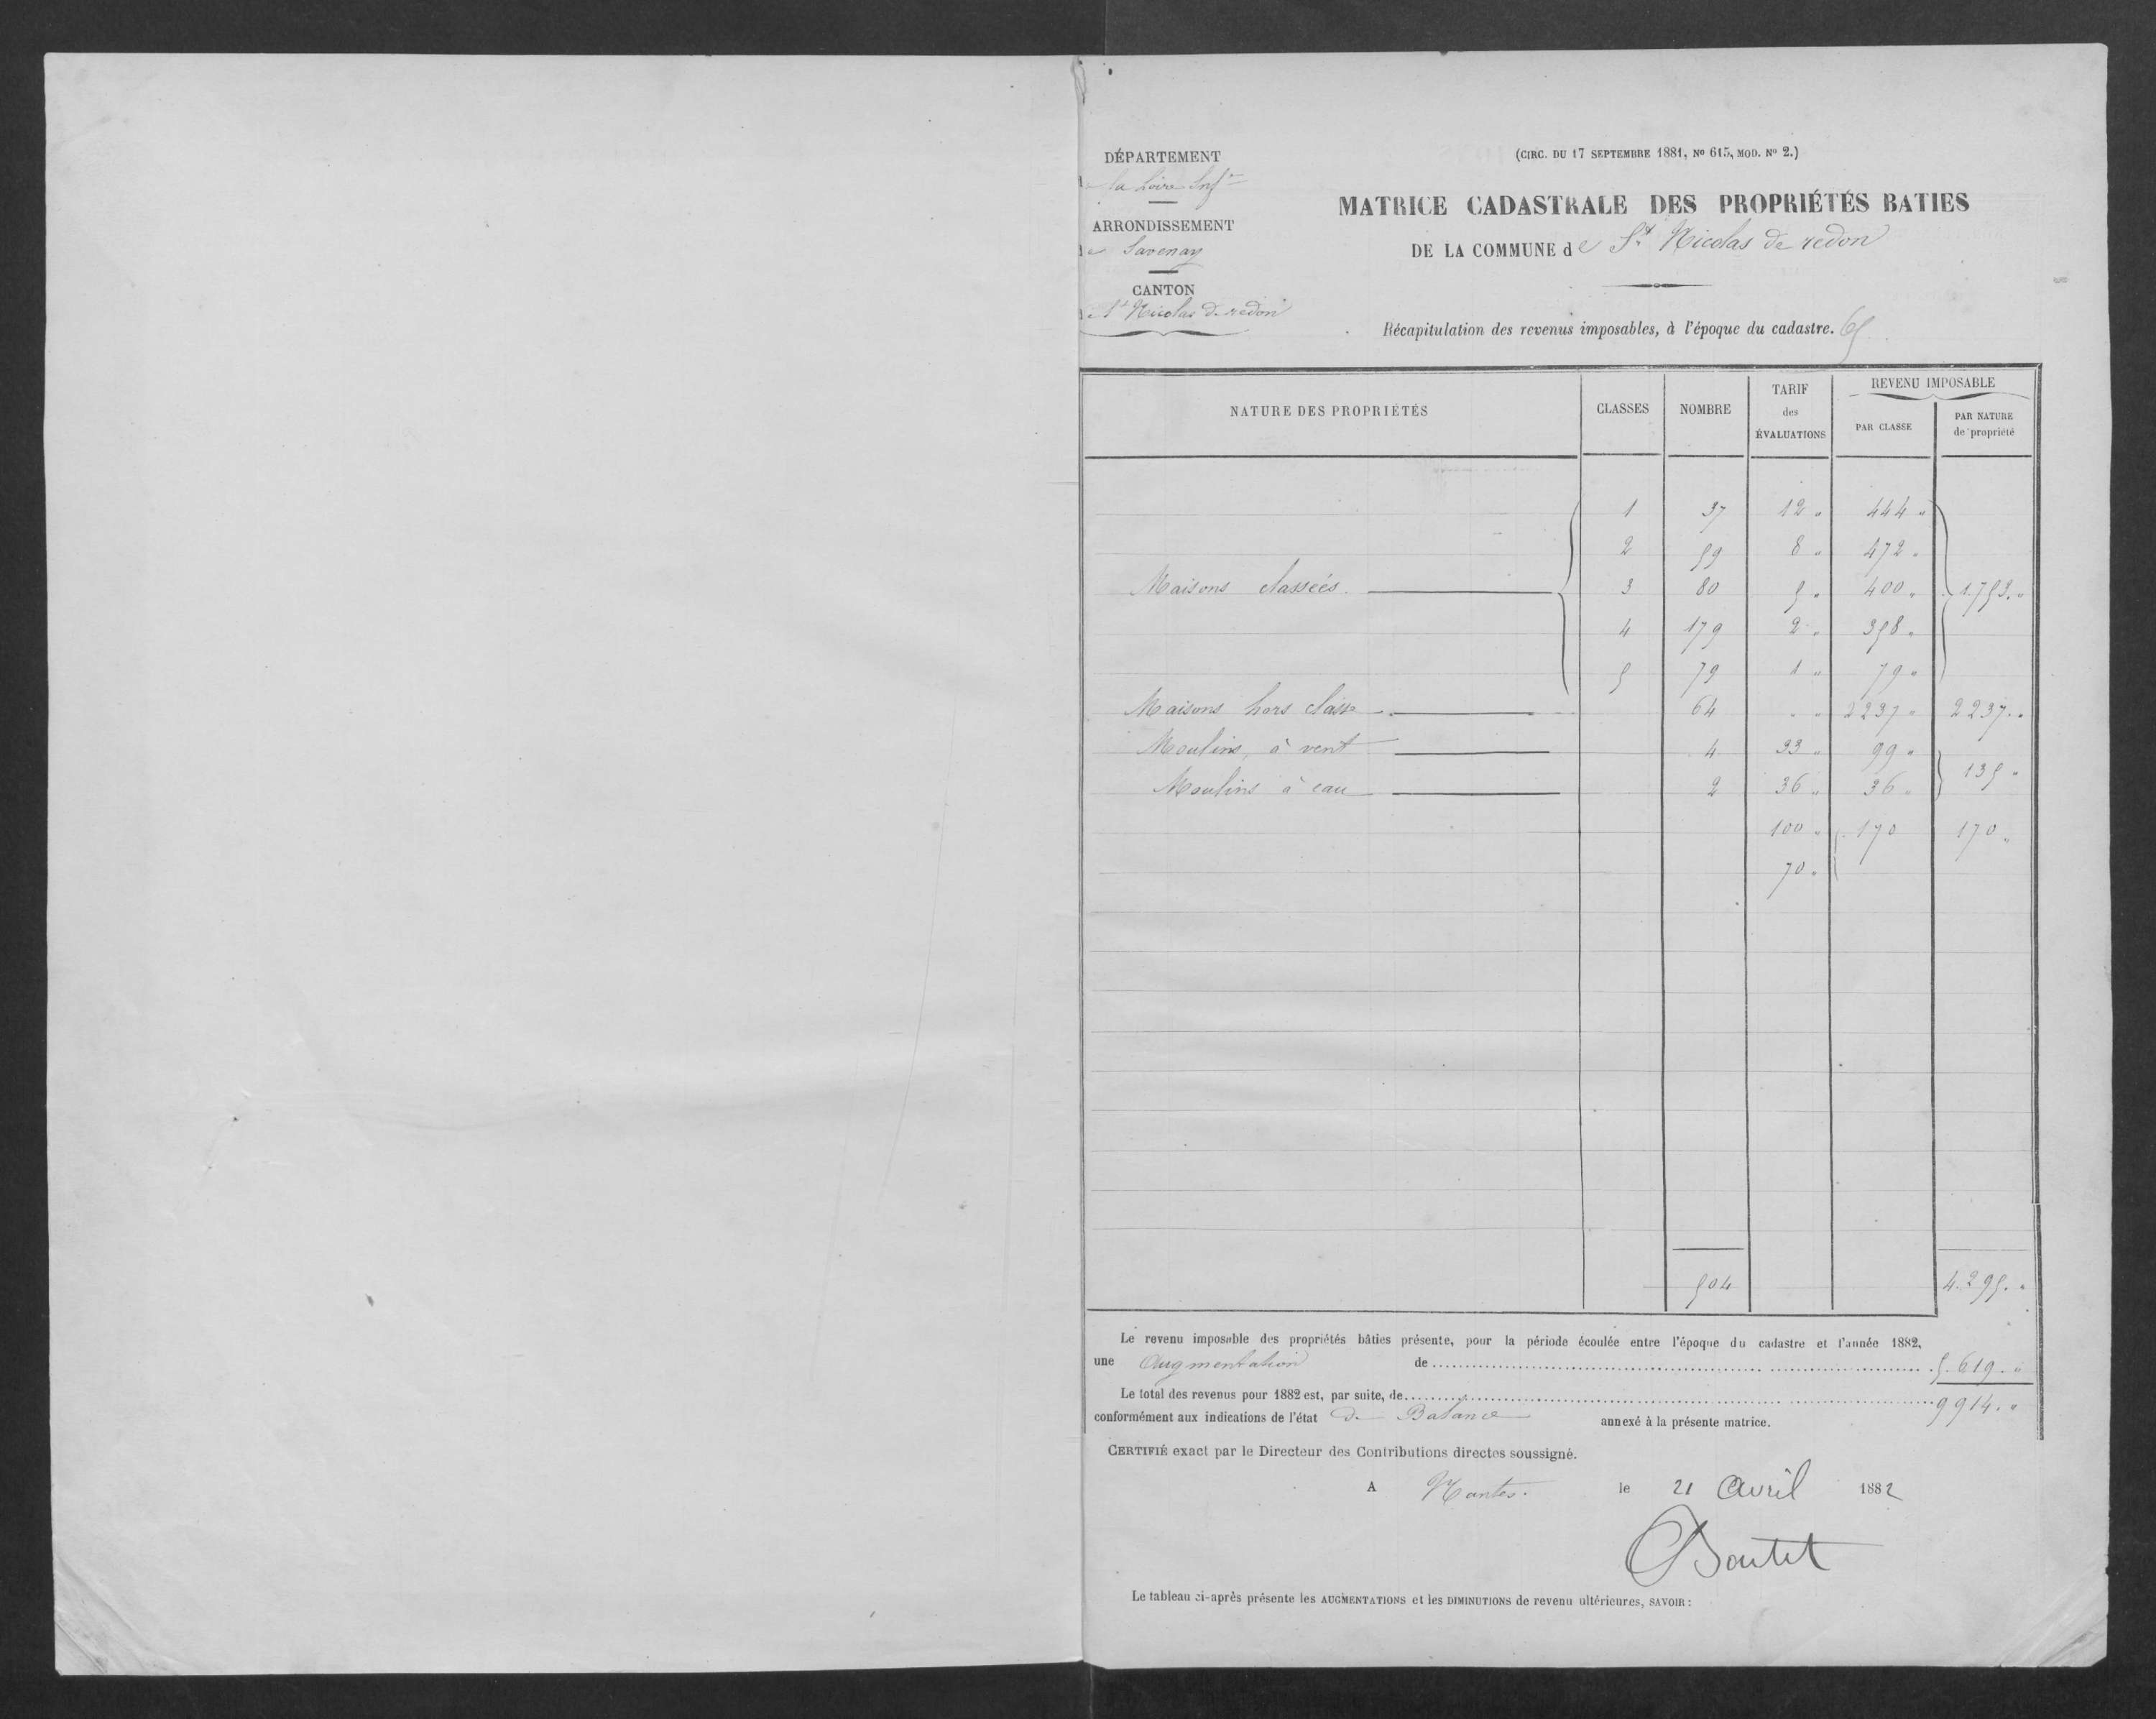 DÉPARTEMENT
la Loire Infre
ARRONDISSEMENT
de Savenay
CANTON
de St Nicolas de redon
(CIRC. DU 17 SEPTEMBRE 1881, No 615, MOD. No 2.)
MATRICE CADASTRALE DES PROPRIÉTÉS BATIES
DE LA COMMUNE de St Nicolas de redon
Récapitulation des revenus imposables, à l'époque du cadastre.
NATURE DES PROPRIÉTÉS CLASSES NOMBRE TARIF des ÉVALUATIONS REVENU IMPOSABLE PAR CLASSE PAR NATURE de propriété
1 37 12 " 444 "
2 59 8 " 472 "
Maisons classées. 3 80 5 " 400 " 1.753. "
4 179 2 " 358 "
5 79 1 " 79 "
Maisons hors classe 64 " " 2237 " 2237. "
Moulins, à vent 4 33 " 99 "
135 "
Moulins à eau 2 36 " 36 "
100 " 170 170 "
70 "
504 4.295. "
Le revenu imposable des propriétés bâties présente, pour la période écoulée entre l'époque du cadastre et l'année 1882,
une Augmentation de 5.619. "
Le total des revenus pour 1882 est, par suite, de 9914. "
conformément aux indications de l'état de Balance annexé à la présente matrice.
CERTIFIÉ exact par le Directeur des Contributions directes soussigné.
A Nantes. le 21 Avril 1882
Boutet
Le tableau ci-après présente les AUGMENTATIONS et les DIMINUTIONS de revenu ultérieures, SAVOIR :